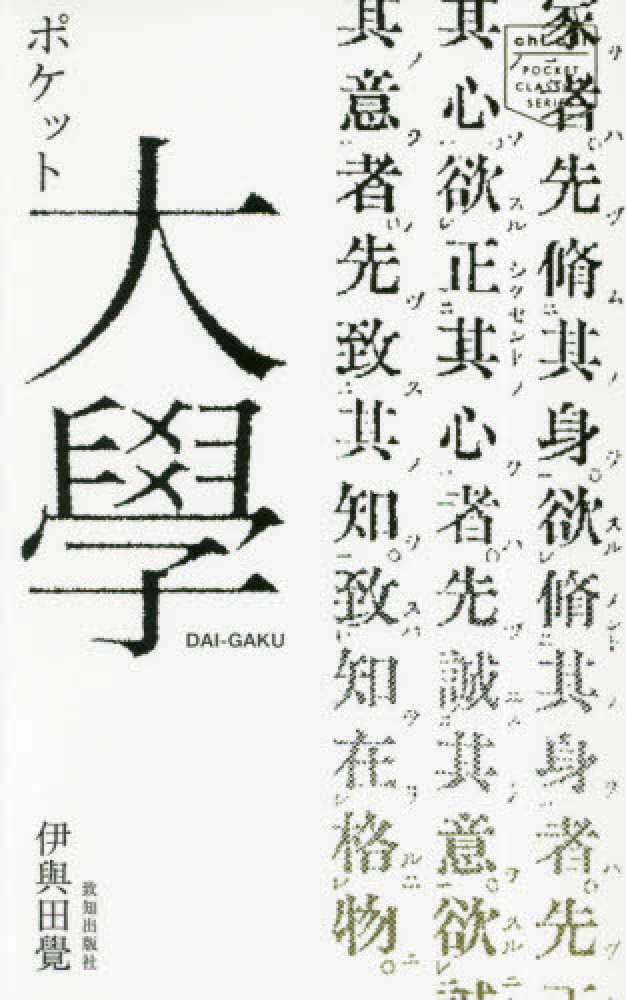 ポケット
大學
DAI-GAKU
伊與田覺
致知出版社
POCKET
家者。先脩其身。欲脩其身者。先
其心欲正其心者。先誠其意。欲誠
其意者先致其知。致知在格物。